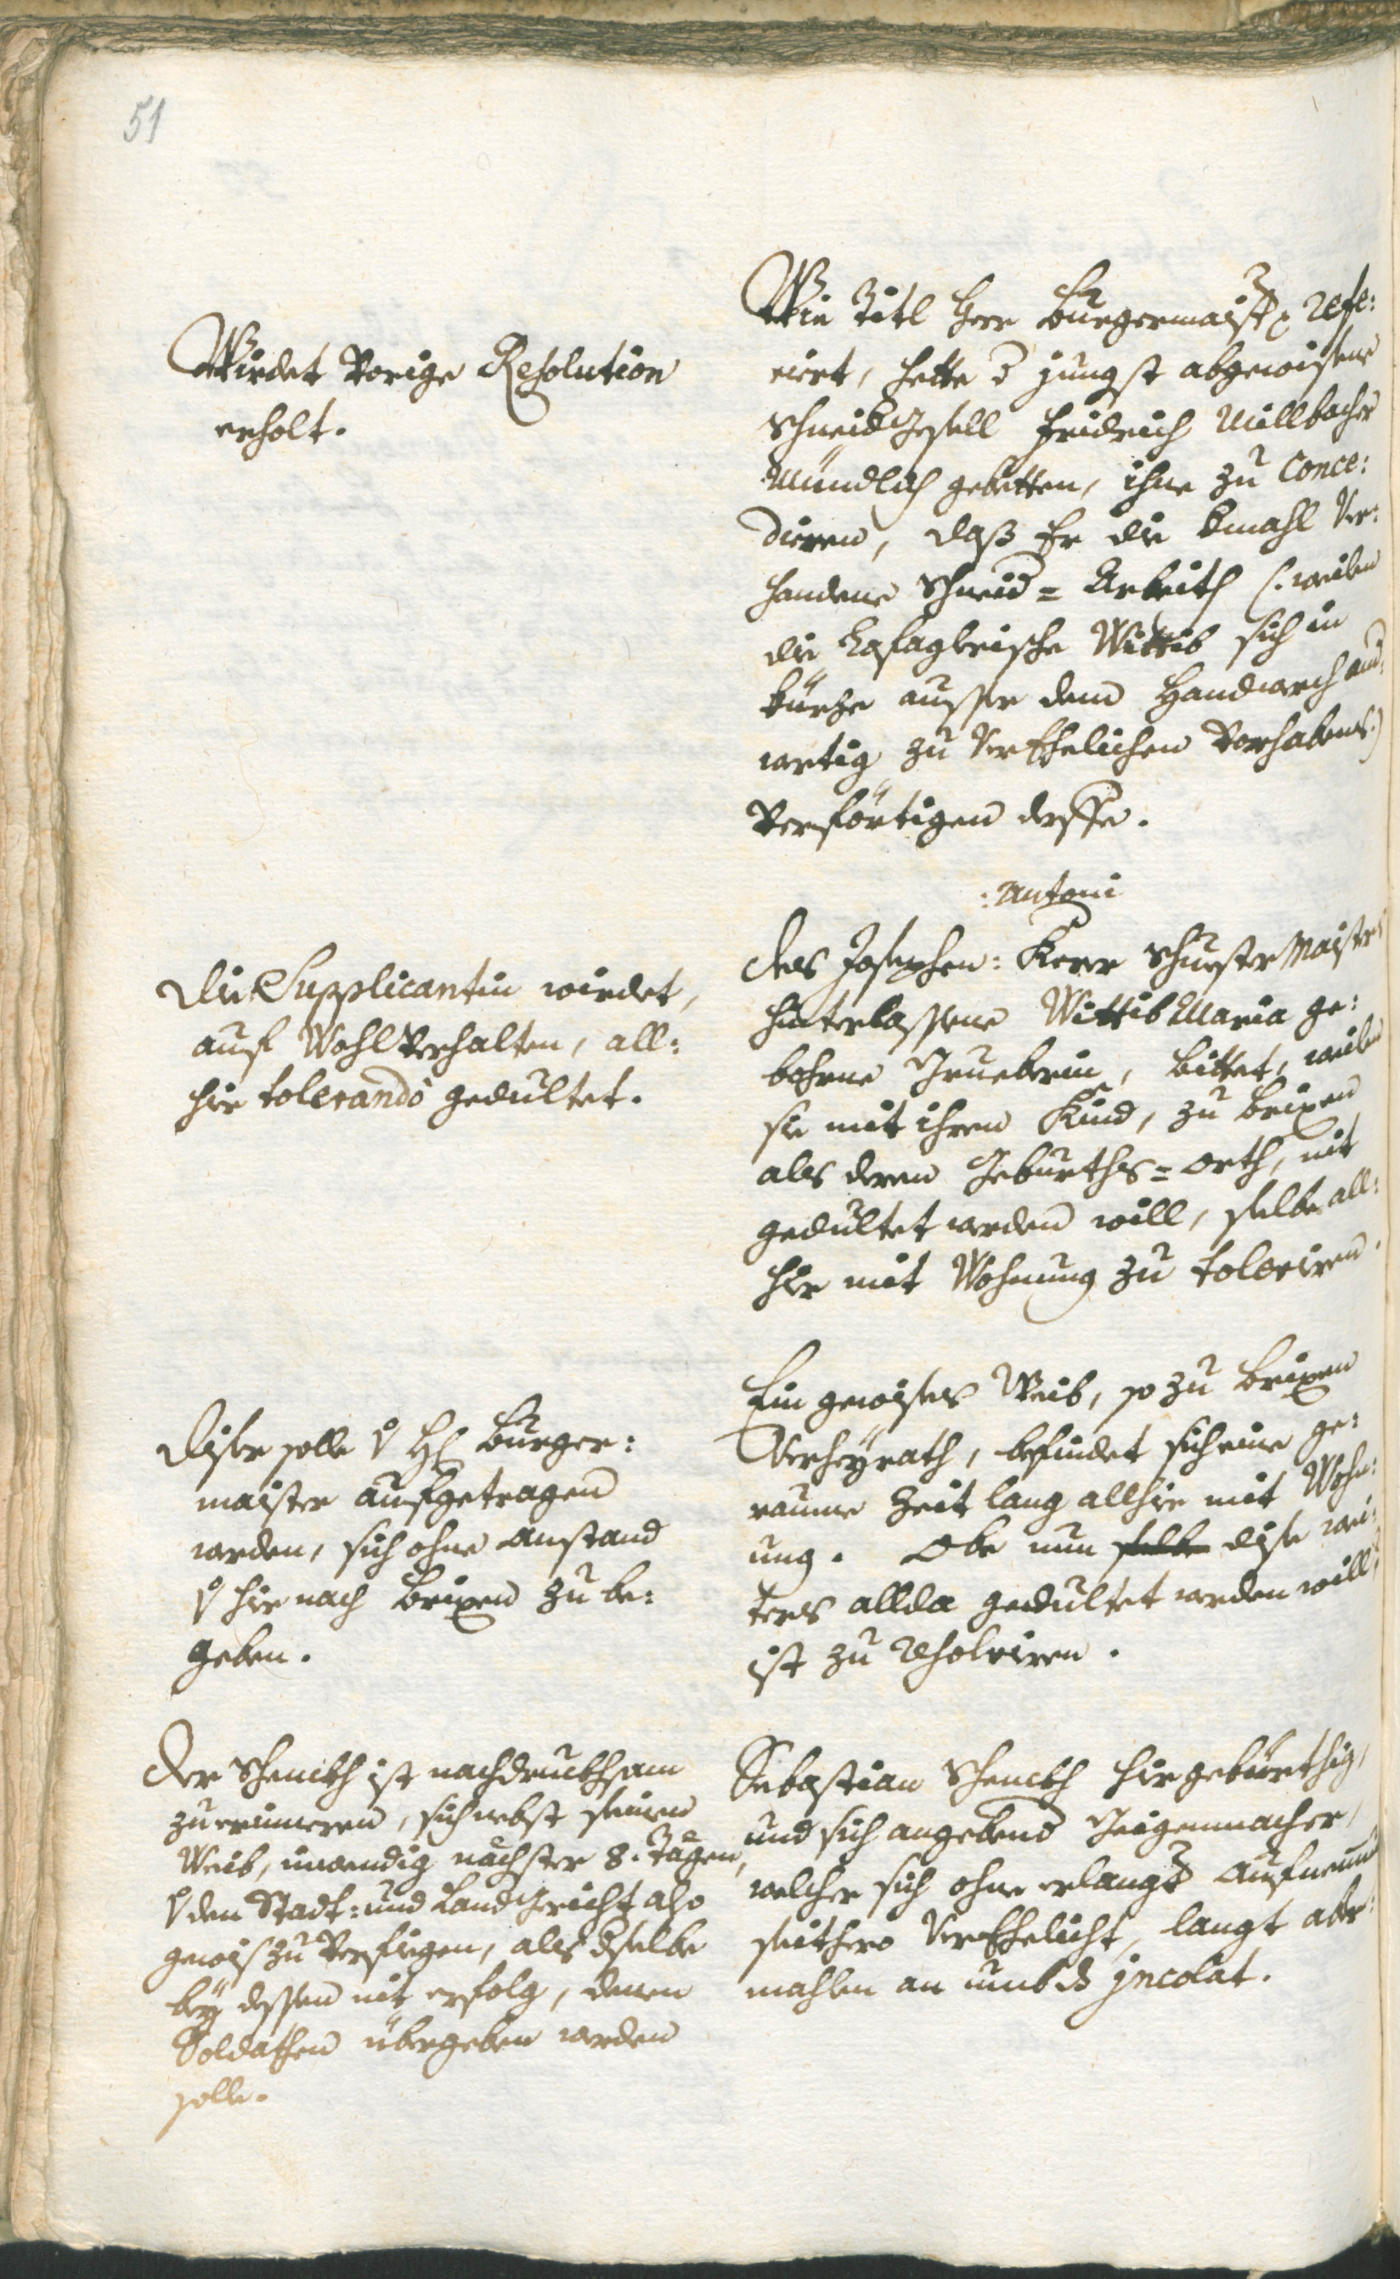 51
Wirdet Vorige Resolution
erholt.
Wie Titl Herr Burgermaister refe:
rirt, hette d jungst abgewisene
Schneid Gesell Fridrich Millbacher
Mündlich gebetten, ihne zu Conce:
diren, daß Er die  Ver:
handene Schneid= Arbeith (: weilen
die  Wittib sich in
kürze ausser dem Handwerch and:
wertig zu Verehelichen Vorhabens:)
Verförtigen derffe.
: Antoni
Die Supplicantin wirdet,
auf Wohl Verhalten, all:
hir tolerando gedultet.
Des Josephen: Kerer Schuester Maisters
hinterlassene Wittib Maria ge:
bohrne Grueberin, bittet, weilen
sie mit ihren Kind, zu Brixen
als deren Geburths=orth, nit
gedultet werden will, selbe all:
hir mit Wohnung zu toleriren.
Diser solle v H: Burger:
maister aufgetragen
werden, sich ohne Anstand
v hir nach Brixen zu be:
geben.
Ein gewises Weib, so zu Brixen
Verheÿrath, befindet sich eine ge:
raume Zeit lang allhir mit Wohn:
ung. Obe nun selbe dise wei:
ters allda gedultet werden will,
ist zu resolviren.
Der Schenckh ist nachdruckhsam
zuerinneren, sich nebst seinen
Weib, inwendig nächster 8. Tägen,
v den Stadt: und Land Gericht also
gewis zu Verfiegen, als dselbe
beÿ dessen nit erfolg, denen
Soldathen übergeben werden
solle.
Sebastian Schenckh hir gebürthig,
und sich angebend Geigenmacher,
welcher sich ohne erlangt Aufnemb
seithero Verehelicht, langt aber:
mahlen an umb ds jncolat.